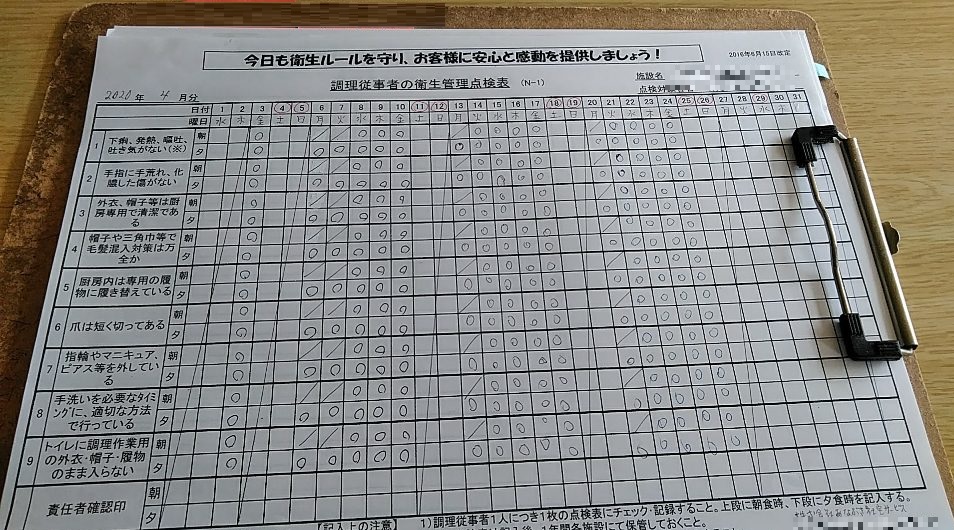 今日も衛生ルールを守り、お客様に安心と感動を提供しましょう！
2016年6月15日改定
調理従事者の衛生管理点検表 (N-1)
施設名
点検対
2020年 4月分
日付 1 2 3 4 5 6 7 8 9 10 11 12 13 14 15 16 17 18 19 20 21 22 23 24 25 26 27 28 29 30 31
曜日 水 木 金 土 日 月 火 水 木 金 土 日 月 火 水 木 金 土 日 月 火 水 木 金 土 日 月 火 水 木
1 下痢、発熱、嘔吐、吐き気がない(※) 朝 夕
2 手指に手荒れ、化膿した傷がない 朝 夕
3 外衣、帽子等は厨房専用で清潔である 朝 夕
4 帽子や三角巾等で毛髪混入対策は万全か 朝 夕
5 厨房内は専用の履物に履き替えている 朝 夕
6 爪は短く切ってある 朝 夕
7 指輪やマニキュア、ピアス等を外している 朝 夕
8 手洗いを必要なタイミングに、適切な方法で行っている 朝 夕
9 トイレに調理作業用の外衣・帽子・履物のまま入らない 朝 夕
責任者確認印 朝 夕
【記入上の注意】 1)調理従事者1人につき1枚の点検表にチェック・記録すること。上段に朝食時、下段に夕食時を記入する。
記入後、1年間各施設にて保管しておくこと。